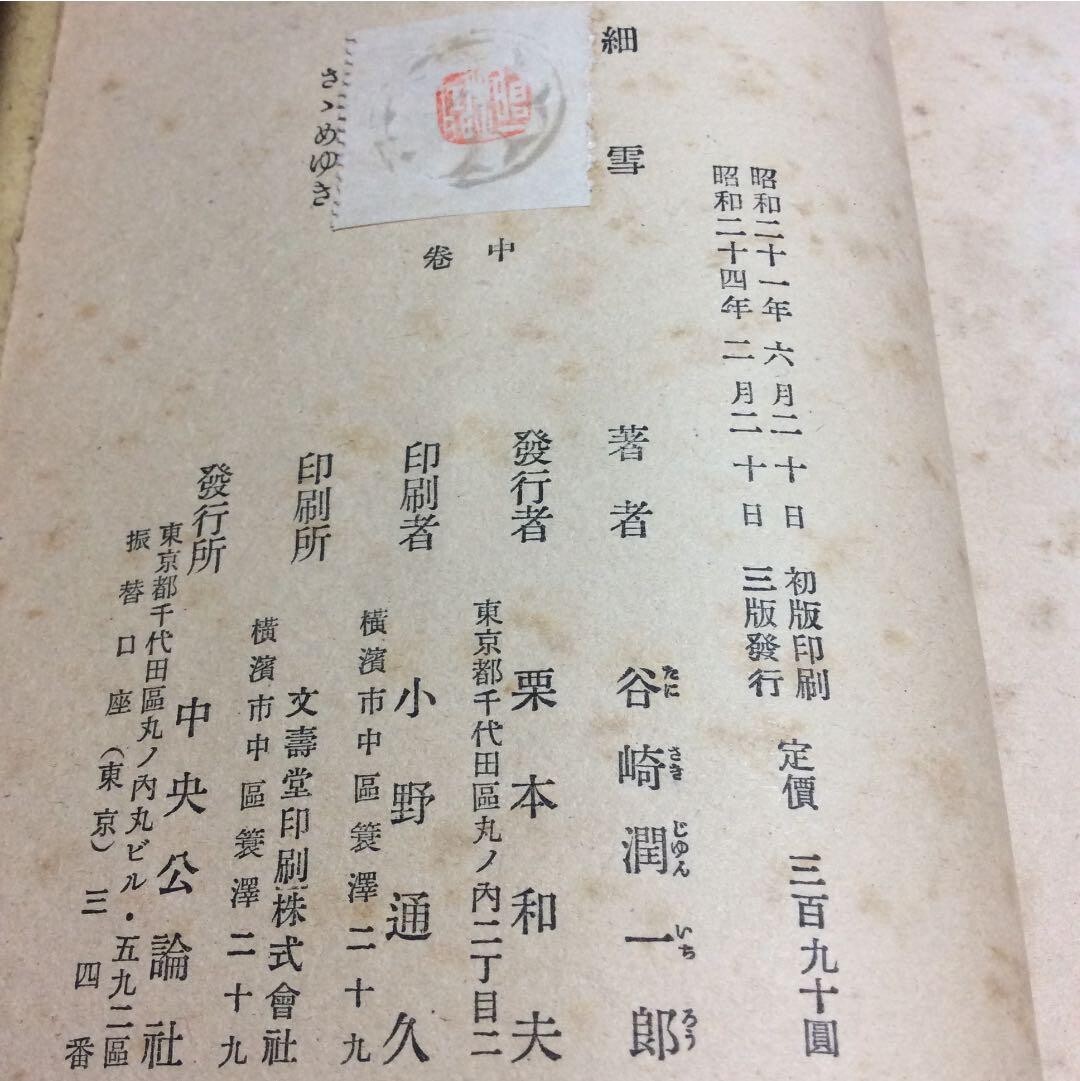 昭和二十一年六月二十日 初版印刷 定價 三百九十圓
昭和二十四年二月二十日 三版發行
細雪
中卷
さゝめゆき
著者 谷崎潤一郎
たに ざき じゆん いち ろう
發行者 栗本和夫
東京都千代田區丸ノ內二丁目二
印刷者 小野通久
橫濱市中區簑澤二十九
印刷所 文壽堂印刷株式會社
橫濱市中區簑澤二十九
發行所 中央公論社
東京都千代田區丸ノ內丸ビル・五九二區
振替口座（東京）三四番